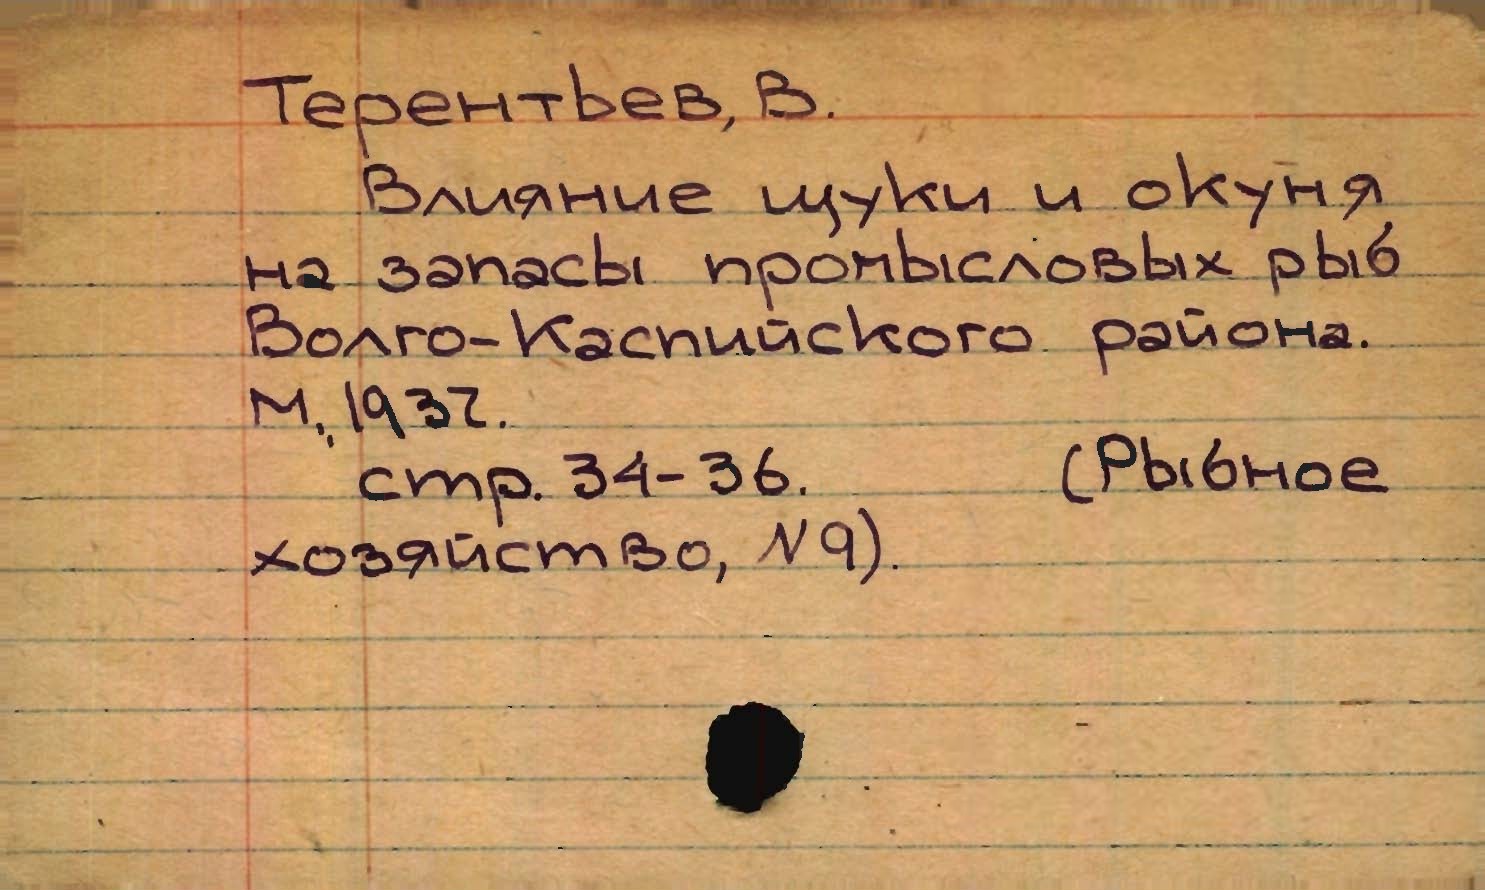 Терентьев, В.
Влияние щуки и окуня
на запасы промысловых рыб
Волго-Каспийского района.
М., 1937.
стр. 34-36. (Рыбное
хозяйство, N 9).